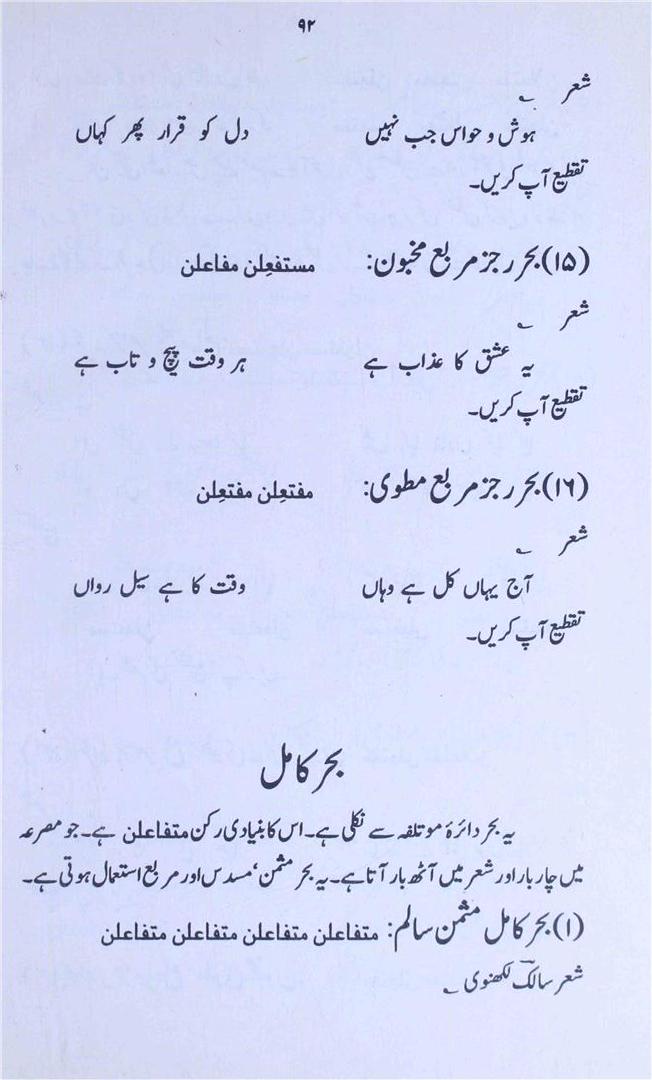 ۹۲
شعر ؎
ہوش و حواس جب نہیں دل کو قرار پھر کہاں
تقطیع آپ کریں۔
(۱۵) بحر رجز مربع مخبون: مستفعِلن مفاعلن
شعر ؎
یہ عشق کا عذاب ہے ہر وقت پیچ و تاب ہے
تقطیع آپ کریں۔
(۱۶) بحر رجز مربع مطوی: مفتعِلن مفتعِلن
شعر ؎
آج یہاں کل ہے وہاں وقت کا ہے سیل رواں
تقطیع آپ کریں۔
بحر کامل
یہ بحر دائرۂ موتلفہ سے نکلی ہے۔ اس کا بنیادی رکن متفاعلن ہے۔ جو مصرعہ
میں چار بار اور شعر میں آٹھ بار آتا ہے۔ یہ بحر مثمن، مسدس اور مربع استعمال ہوتی ہے۔
(۱) بحر کامل مثمن سالم: متفاعلن متفاعلن متفاعلن متفاعلن
شعر سالکؔ لکھنوی ؎